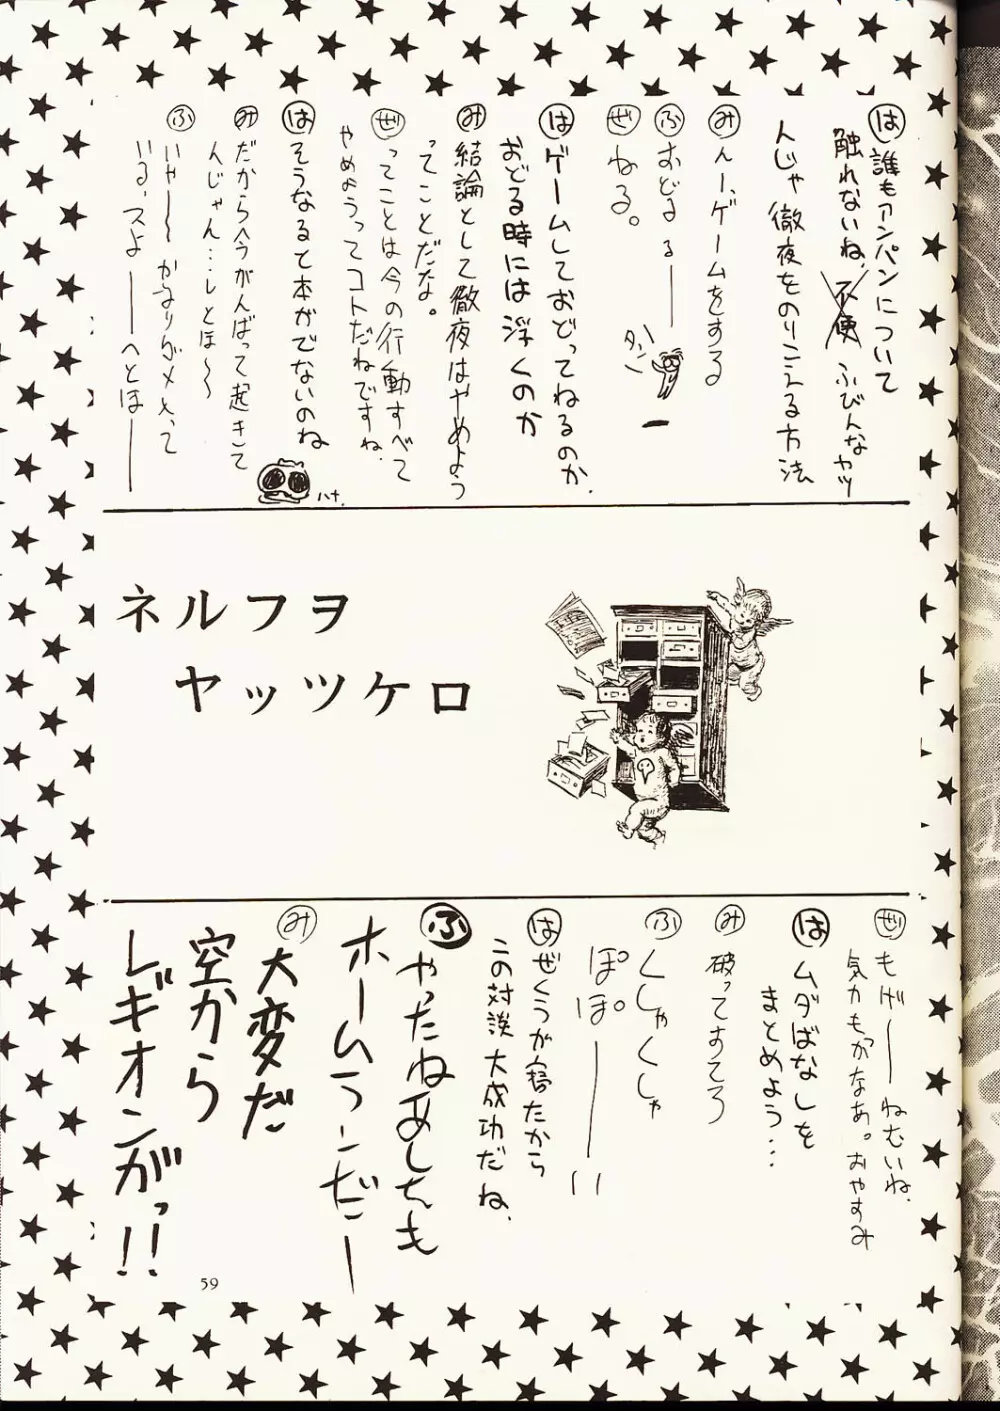 は 誰もアンパンについて
触れないね、不便 ふびんなヤツ
んじゃ徹夜をのりこえる方法
み んー、ゲームをする
ふ おどるるー
タンー
ぜ ねる。
は ゲームしておどってねるのか、
おどる時には浮くのか
み 結論として徹夜はやめよう
ってことだな。
ぜ ってことは今の行動すべて
やめようってコトだねですね、
は そうなると本がでないのね
ハナ、
み だから今がんばって起きて
んじゃん…しとほ～～
ふ いやー～かなりダメ入って
いる、スよーへとほー
ネルフヲ
ヤッツケロ
ぜ もげーねむいね、
気力もつかなあ。おやすみ
は ムダばなしを
まとめよう…
み 破ってすてろ
ふ くしゃくしゃ
ぽぽーい
は ぜくうが寝たから
この対談大成功だね、
ふ やったねあしたも
ホームランだー
み 大変だ
空から
レギオンがっ!!
59